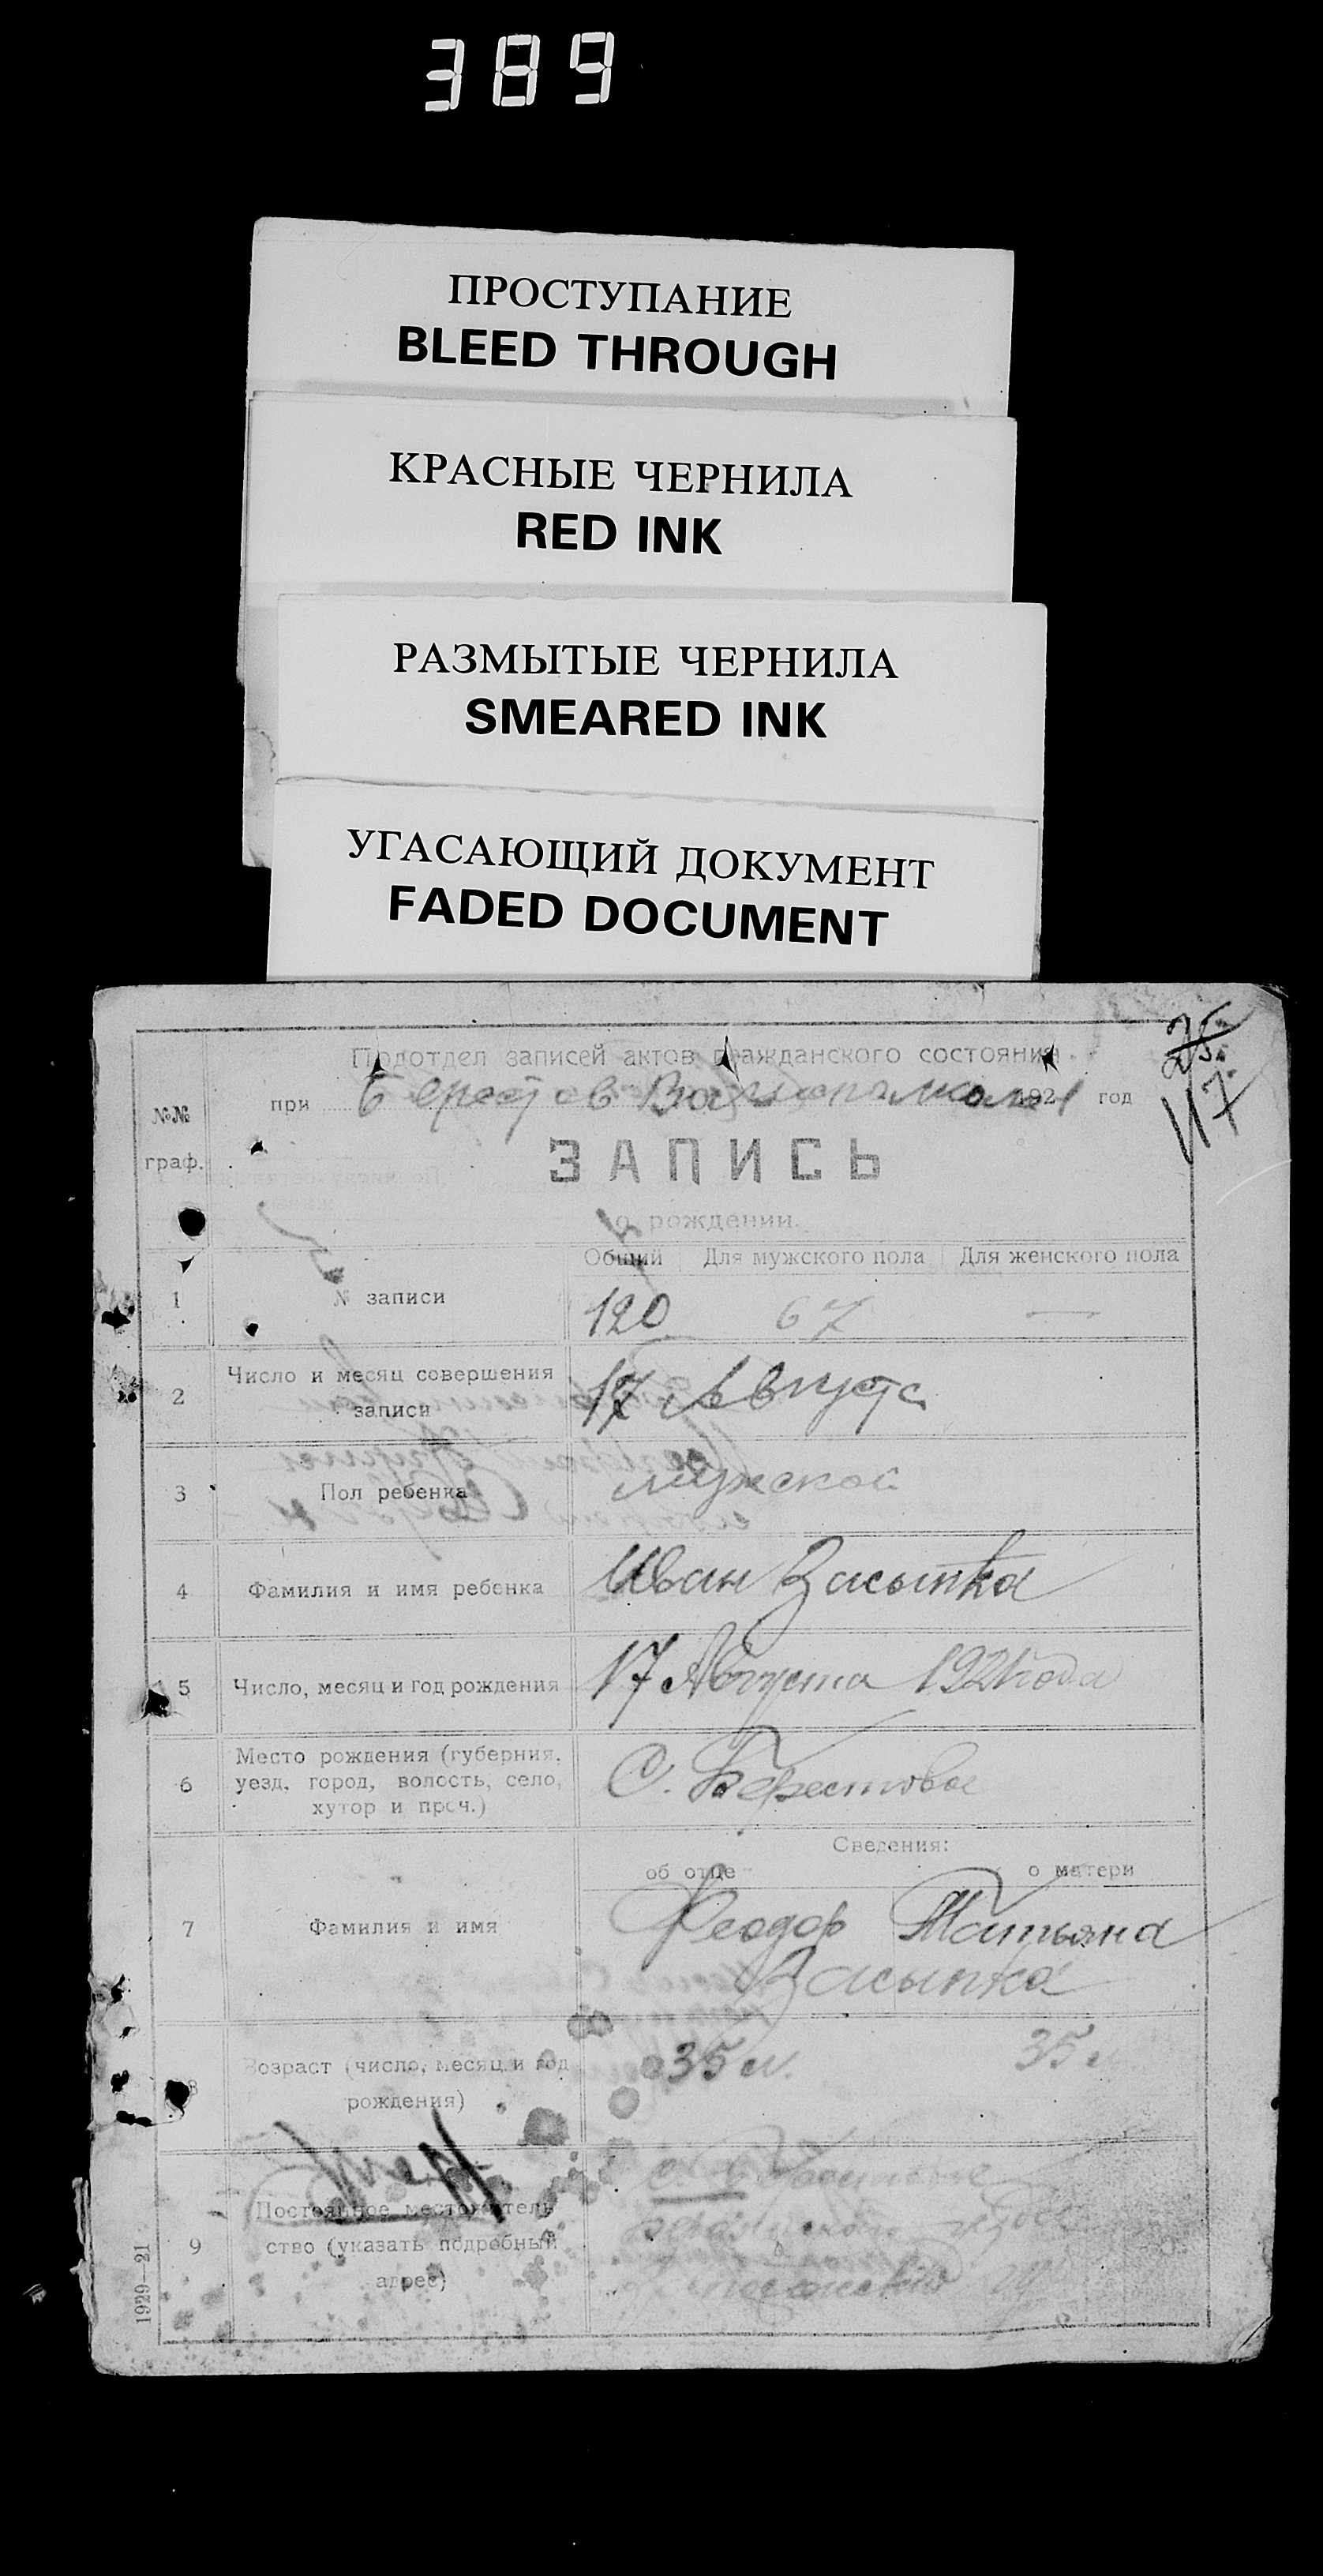 389
ПРОСТУПАНИЕ
BLEED THROUGH
КРАСНЫЕ ЧЕРНИЛА
RED INK
РАЗМЫТЫЕ ЧЕРНИЛА
SMEARED INK
УГАСАЮЩИЙ ДОКУМЕНТ
FADED DOCUMENT
117
Подотдел записей актов гражданского состояния
при 1921 год
№№
граф.
ЗАПИСЬ
о рождении.
Общий Для мужского пола Для женского пола
1 № записи 120 67 —
2 Число и месяц совершения
записи 17 Августа
3 Пол ребенка мужской
4 Фамилия и имя ребенка Иван Засыпка
5 Число, месяц и год рождения 17 Августа 1921 года
6 Место рождения (губерния,
уезд, город, волость, село,
хутор и проч.) С. Берестовое
Сведения:
об отце о матери
7 Фамилия и имя Феодор Татьяна
Засыпка
8 Возраст (число, месяц и год
рождения) 35 л. 35 л
9 Постоянное местожитель-
ство (указать подробный
адрес)
1929—21